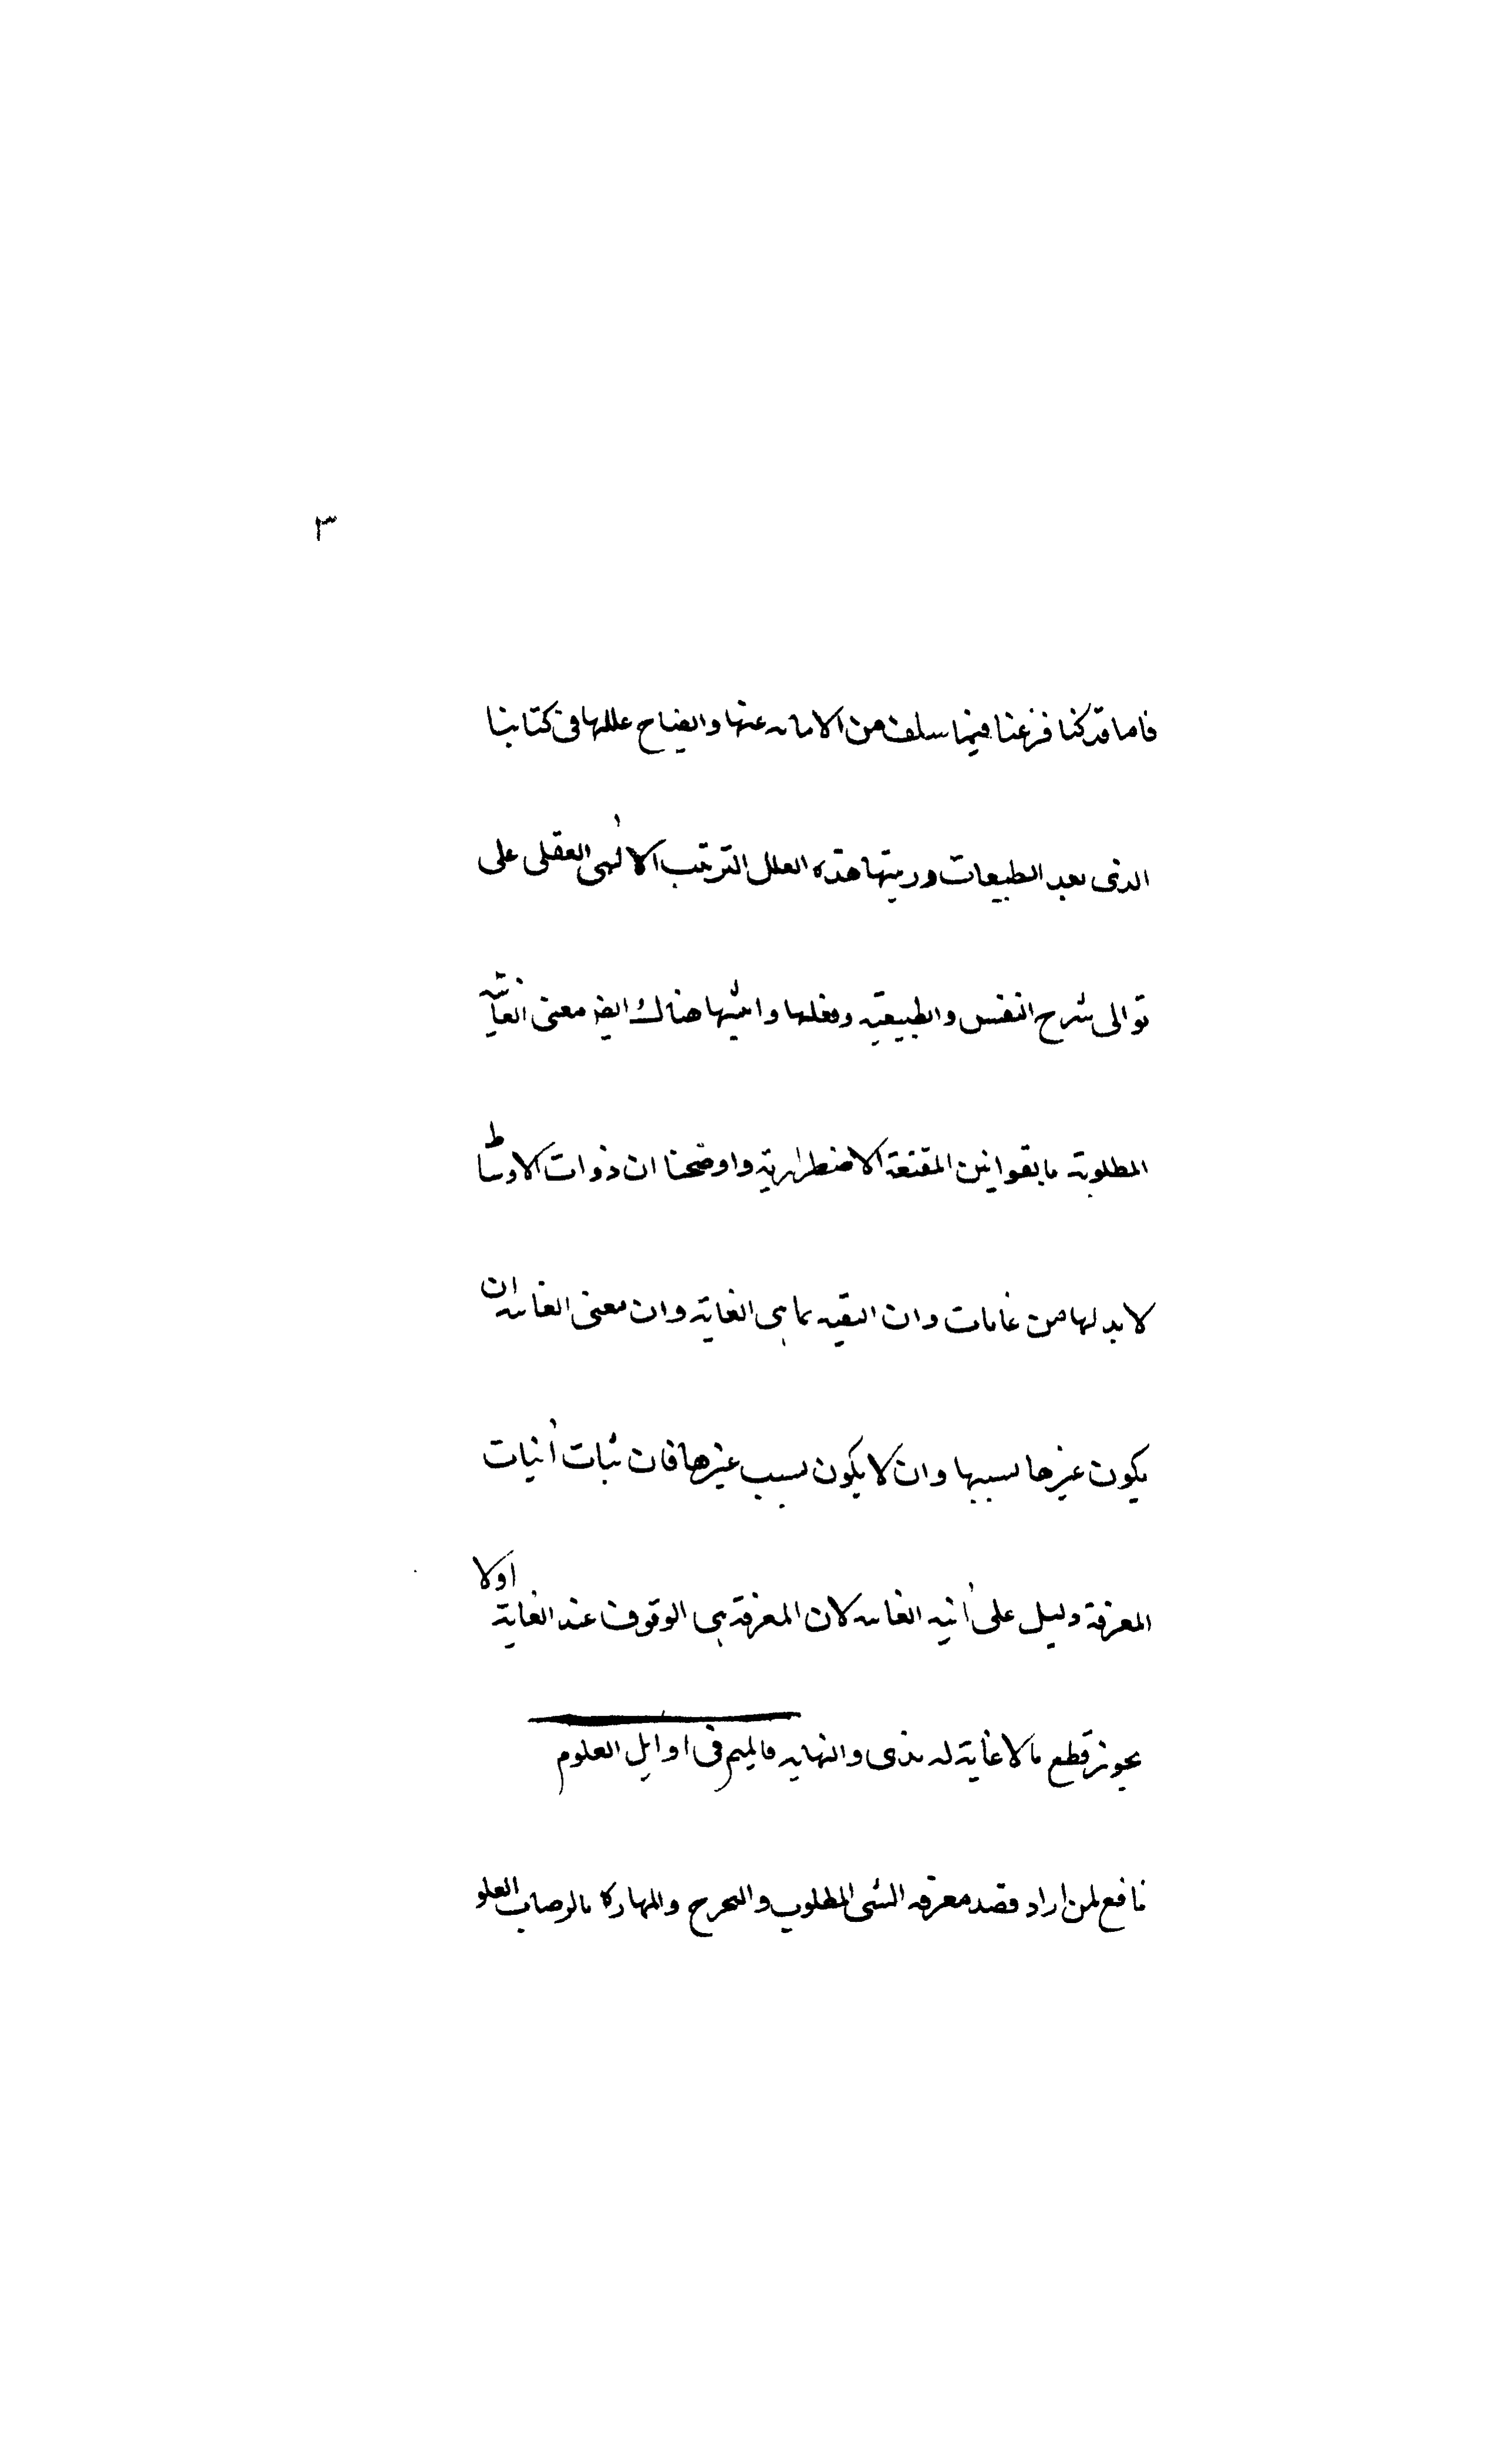 ٣
فاما قد كنا فزغنا فيما سلف من الامانه عنها وايضاح عللها فى كتابنا
الذى بعد الطبيعات ورتبنها هذه العلل الترتيب الالهى العقلى على
توالى شرح النفس والطبيعية وفعلها واثبتها هناك ايضا معنى الغاية
المطلوبة بالقوانين المقنعة الاضطرارية واوضحنا ان ذوات الاوساط
لابد لها من غايات وان البقيه بما هى الغاية وان معنى الغايه ان
يكون غيرها بسببها وان لا يكون بسبب غيرها فان ثبات أنيات
المعرفة دليل على أنيه الغايه لان المعرفة هى الوقوف عند الغاية اولا
يجوز قطع ما لا غاية له بذى والنهايه فالميم فى اوايل العلوم
نافع لمن اراد قصد معرفه الشى المطلوب والتحرج والمهاركا العلو